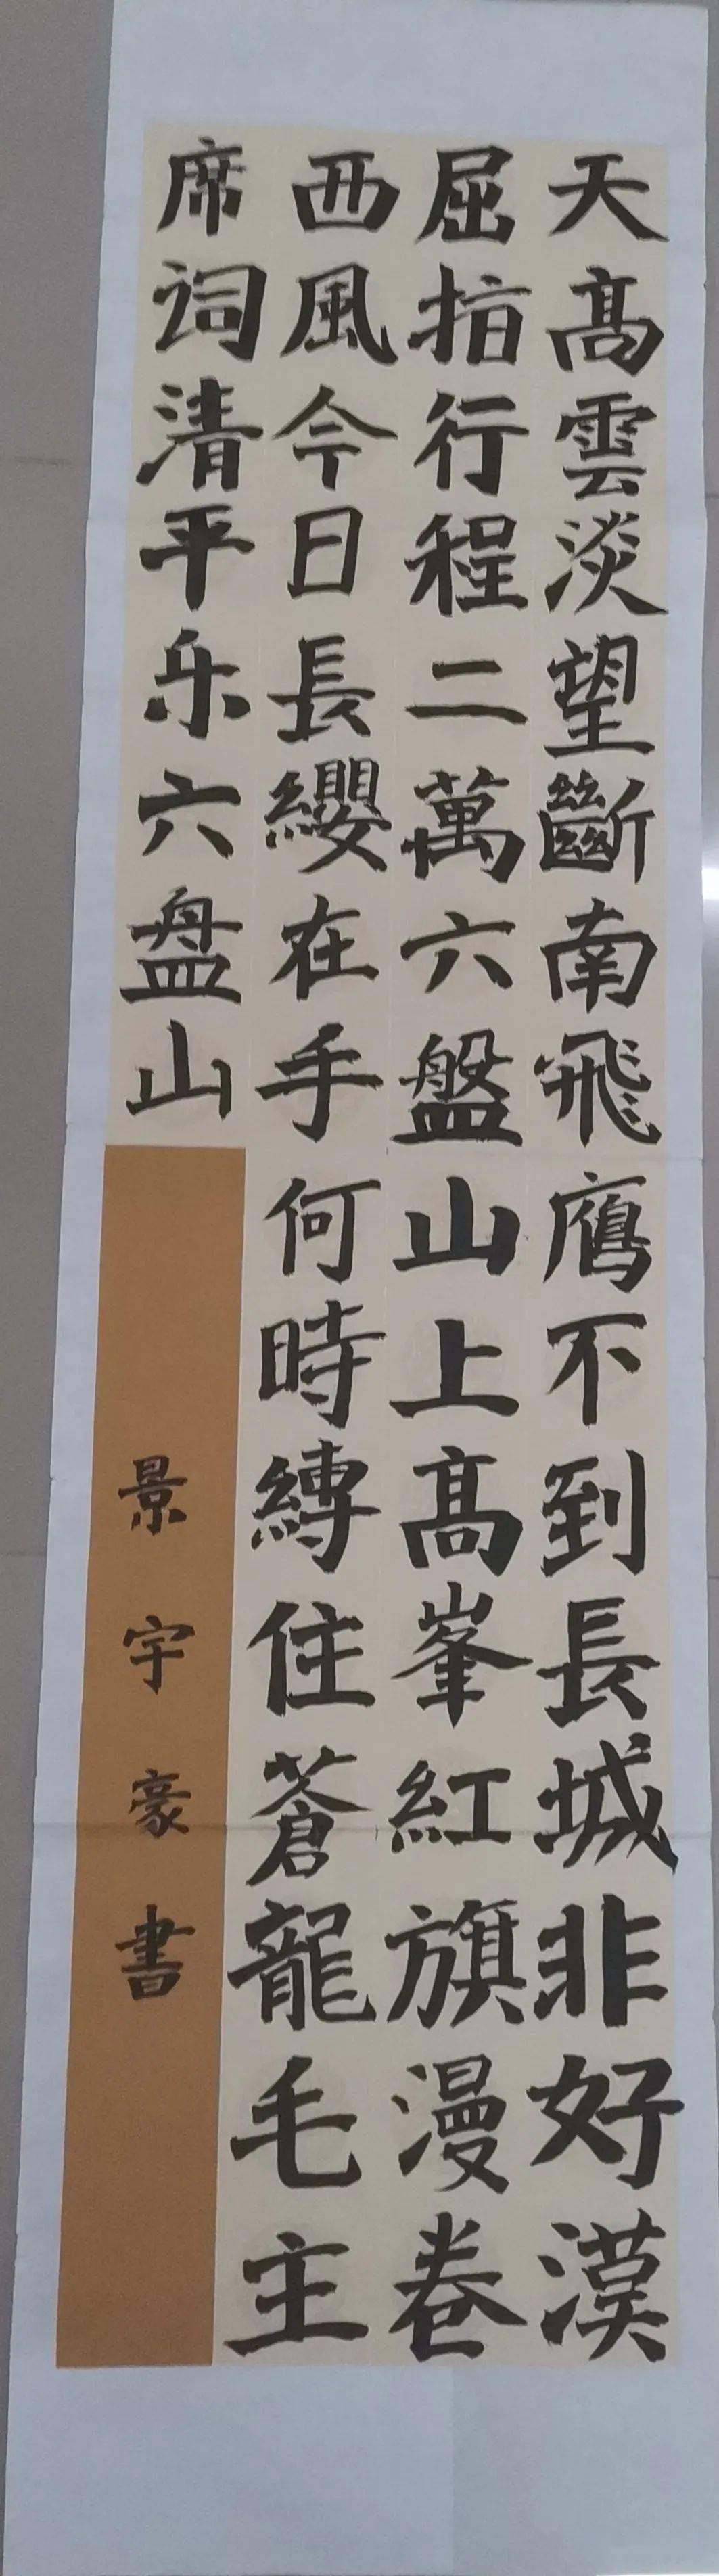 天高雲淡望斷南飛鴈不到長城非好漢
屈指行程二萬六盤山上高峯紅旗漫卷
西風今日長纓在手何時縛住蒼龍毛主
席词清平乐六盘山
景宇豪書